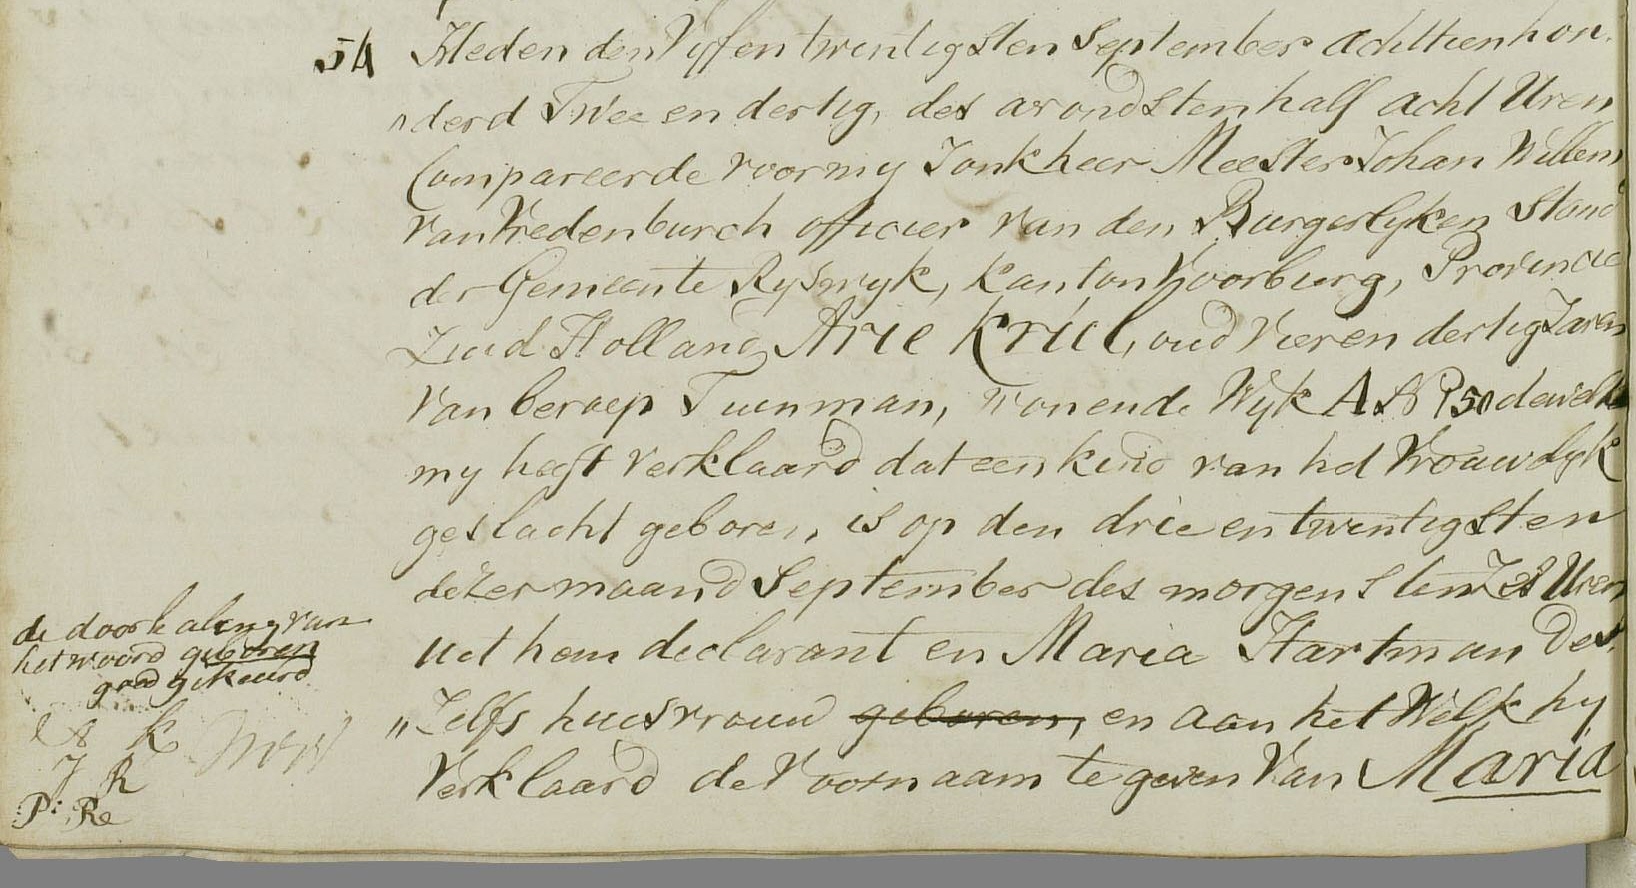 54 Heden den Vyf en twintigsten September Achttienhon-
derd Twee en dertig, des avonds ten half acht Uren
Compareerde voor my Jonkheer Meester Johan Willem
van Vredenburch officier van den Burgerlyken Stand
der Gemeente Ryswyk, Kanton Voorburg, Provincie
Zuid Holland, Arie Krul, oud Vier en dertig Jaren
van beroep Tuinman, wonende Wyk A No 50 dewelke
my heeft verklaard dat een kind van het Vrouwelyk
geslacht geboren, is op den drie en twintigsten
dezer maand September des morgens ten Zes Uren
uit hem declarant en Maria Hartman Des-
"Zelfs huisvrouw geboren, en aan het Welk hy
Verklaard de Voornaam te geven Van Maria
de doorhaling van
het woord geboren
goed gekeurd
A k
J R
P: Re